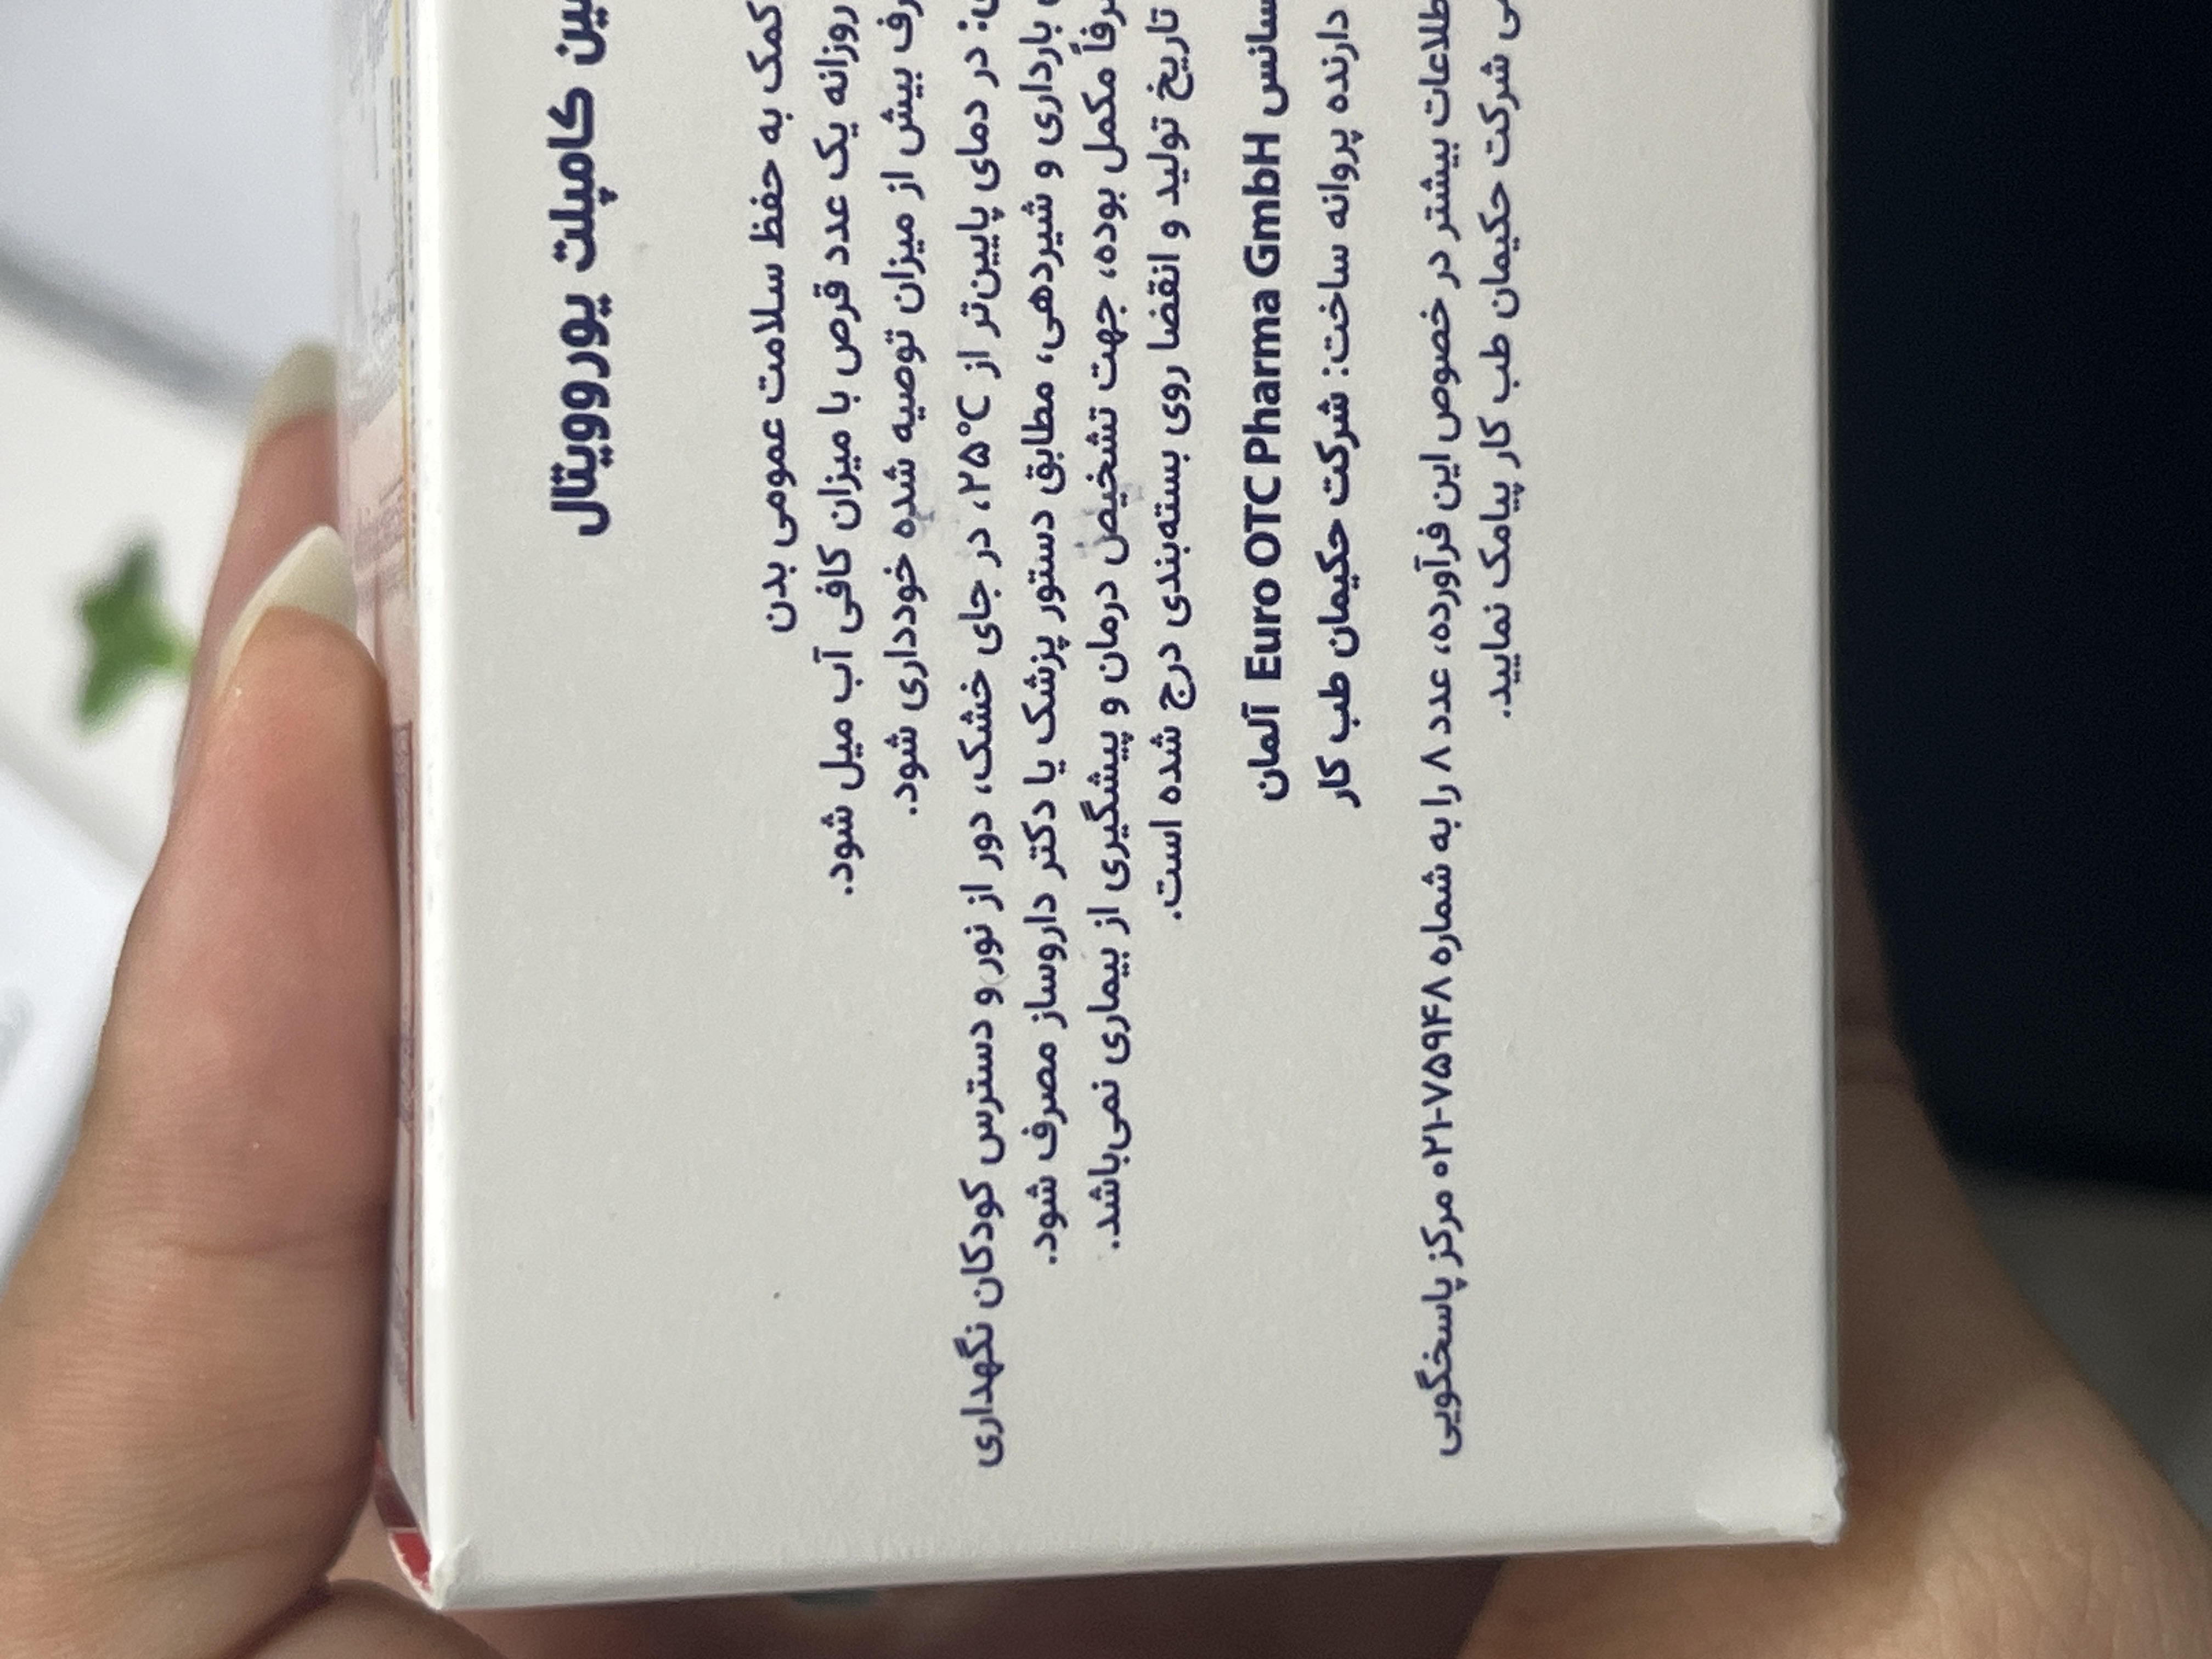 کامپلت یوروویتال
کمک به حفظ سلامت عمومی بدن
روزانه یک عدد قرص با میزان کافی آب میل شود.
بیش از میزان توصیه شده خودداری شود.
در دمای پایین‌تر از ۲۵°C، در جای خشک، دور از نور و دسترس کودکان نگهداری
بارداری و شیردهی، مطابق دستور پزشک یا دکتر داروساز مصرف شود.
مکمل بوده، جهت تشخیص درمان و پیشگیری از بیماری نمی‌باشد.
تاریخ تولید و انقضا روی بسته‌بندی درج شده است.
Euro OTC Pharma GmbH آلمان
دارنده پروانه ساخت: شرکت حکیمان طب کار
بیشتر در خصوص این فرآورده، عدد ۸ را به شماره ۷۵۹۴۸-۰۲۱ مرکز پاسخگویی
شرکت حکیمان طب کار پیامک نمایید.